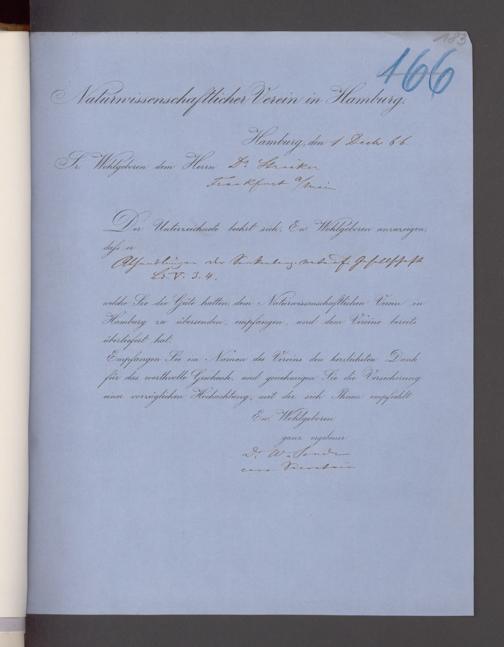 183
166
Naturwissenschaftlicher Verein in Hamburg.
Hamburg, den 1 Decb 66
Sr. Wohlgeboren dem Herrn Dr. Stricker
Frankfurt a/Main
Der Unterzeichnete beehrt sich, Ew. Wohlgeboren anzuzeigen,
daß er
Abhandlungen der Senckenberg. naturf. Gesellschaft
Bd. V. 3. 4.
welche Sie die Güte hatten, dem Naturwissenschaftlichen Verein in
Hamburg zu übersenden, empfangen, und dem Vereine bereits
überliefert hat.
Empfangen Sie im Namen des Vereins den herzlichsten Dank
für das werthvolle Geschenk, und genehmigen Sie die Versicherung
einer vorzüglichen Hochachtung, mit der sich Ihnen empfiehlt
Ew. Wohlgeboren
ganz ergebener
Dr. W.